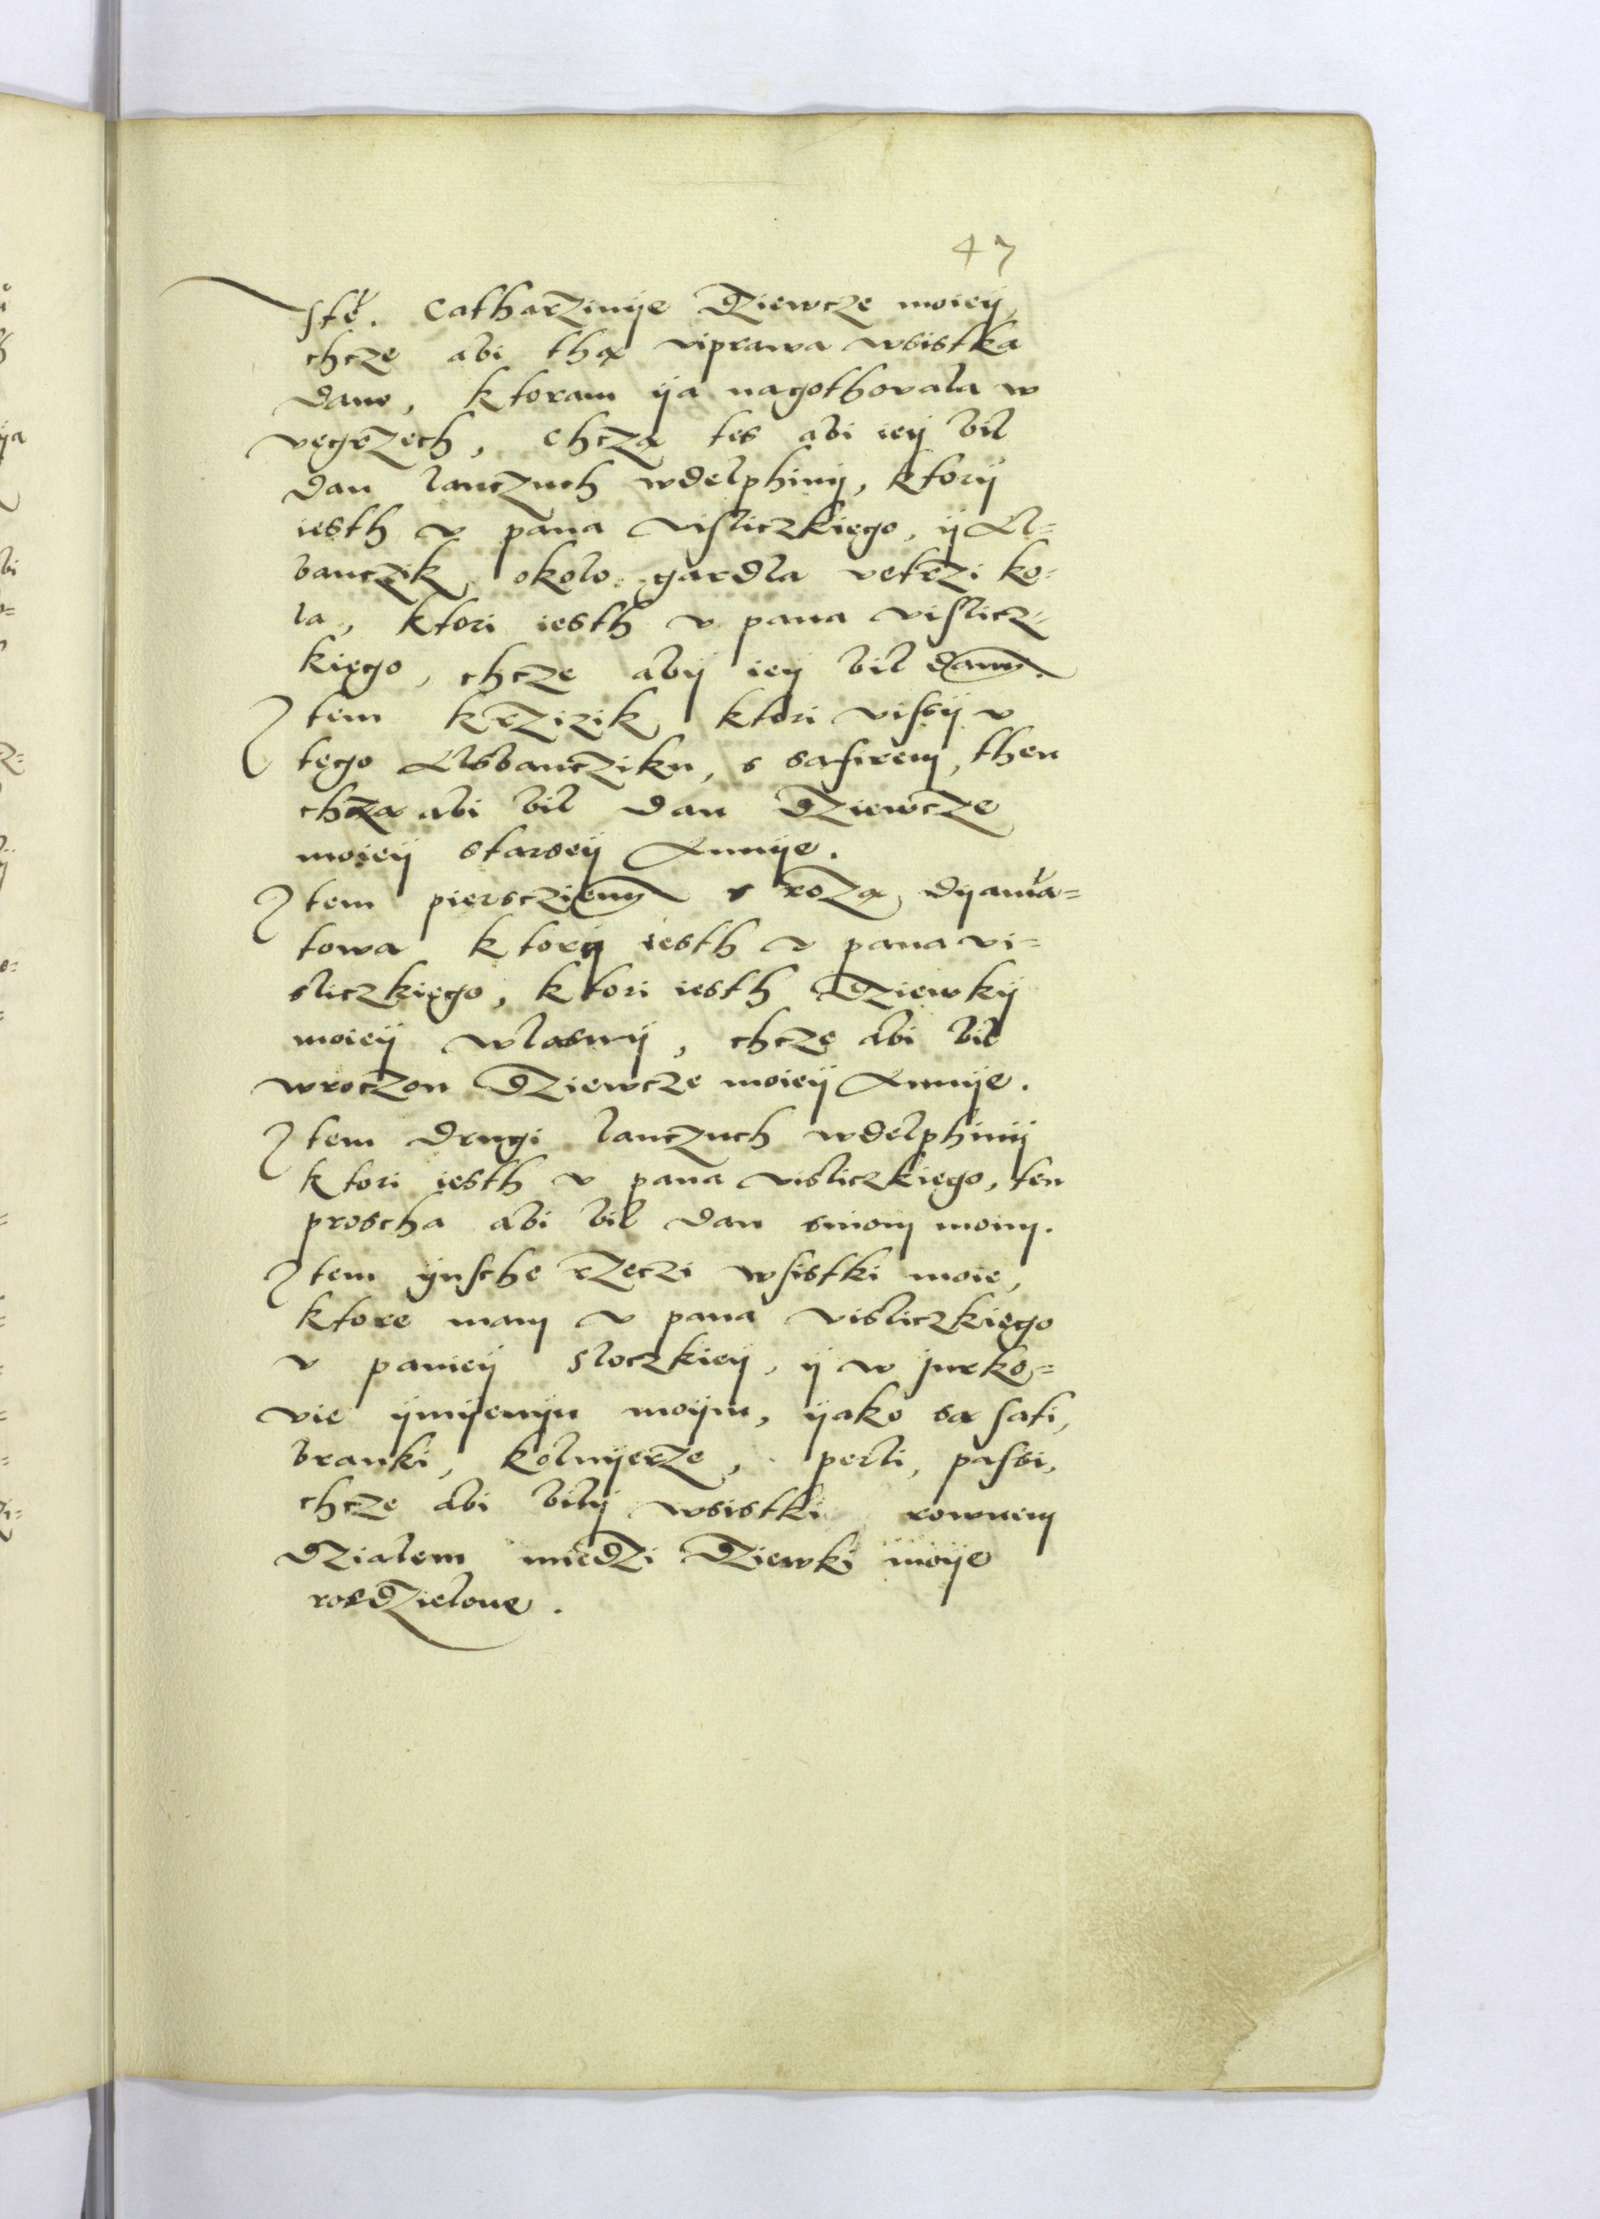 47
Ite. Catharzinÿe Dziewcze moieÿ,
chcze abi thą viprawa wsistka
dano, ktoram ÿa nagothovala w
vęgrzech, chczą tes abi ieÿ bil
dan lanczuch wdelphinÿ, ktorÿ
iesth v pana visliczkięgo, ÿ Al=
banczik okolo gardla vetrzi ko=
la, ktori iesth v pana vislicz=
kięgo, chcze abÿ ieÿ bil danÿ.
Item krzizik ktori vissÿ v
tęgo Alsbancziku, s safirem, then
chczą abi bil dan Dziewcze
moieÿ starseÿ Annÿe.
Item piersczienÿ s rozą dyama=
towa ktorÿ iesth v pana vi=
sliczkięgo, ktori iesth Dziewkÿ
moieÿ wlasnÿ, chczę abi bil
wroczon Dziewcze moieÿ Annÿe.
Item drugi lanczuch wdelphinÿ
ktori iesth v pana visliczkięgo, ten
proscha abi bil dan sinom moim.
Item ÿnsche rzeczi wsistki moie,
ktore mam v pana visliczkięgo
v panieÿ Sloczkieÿ, ÿ w Jurko=
vie ÿmÿenÿu moÿm, ÿako są sati,
branki, kolnÿerze, perli, passi,
chcze abi bilÿ wsistki rownem
dzialem miedzi Dziewki moÿe
rosdzielone.